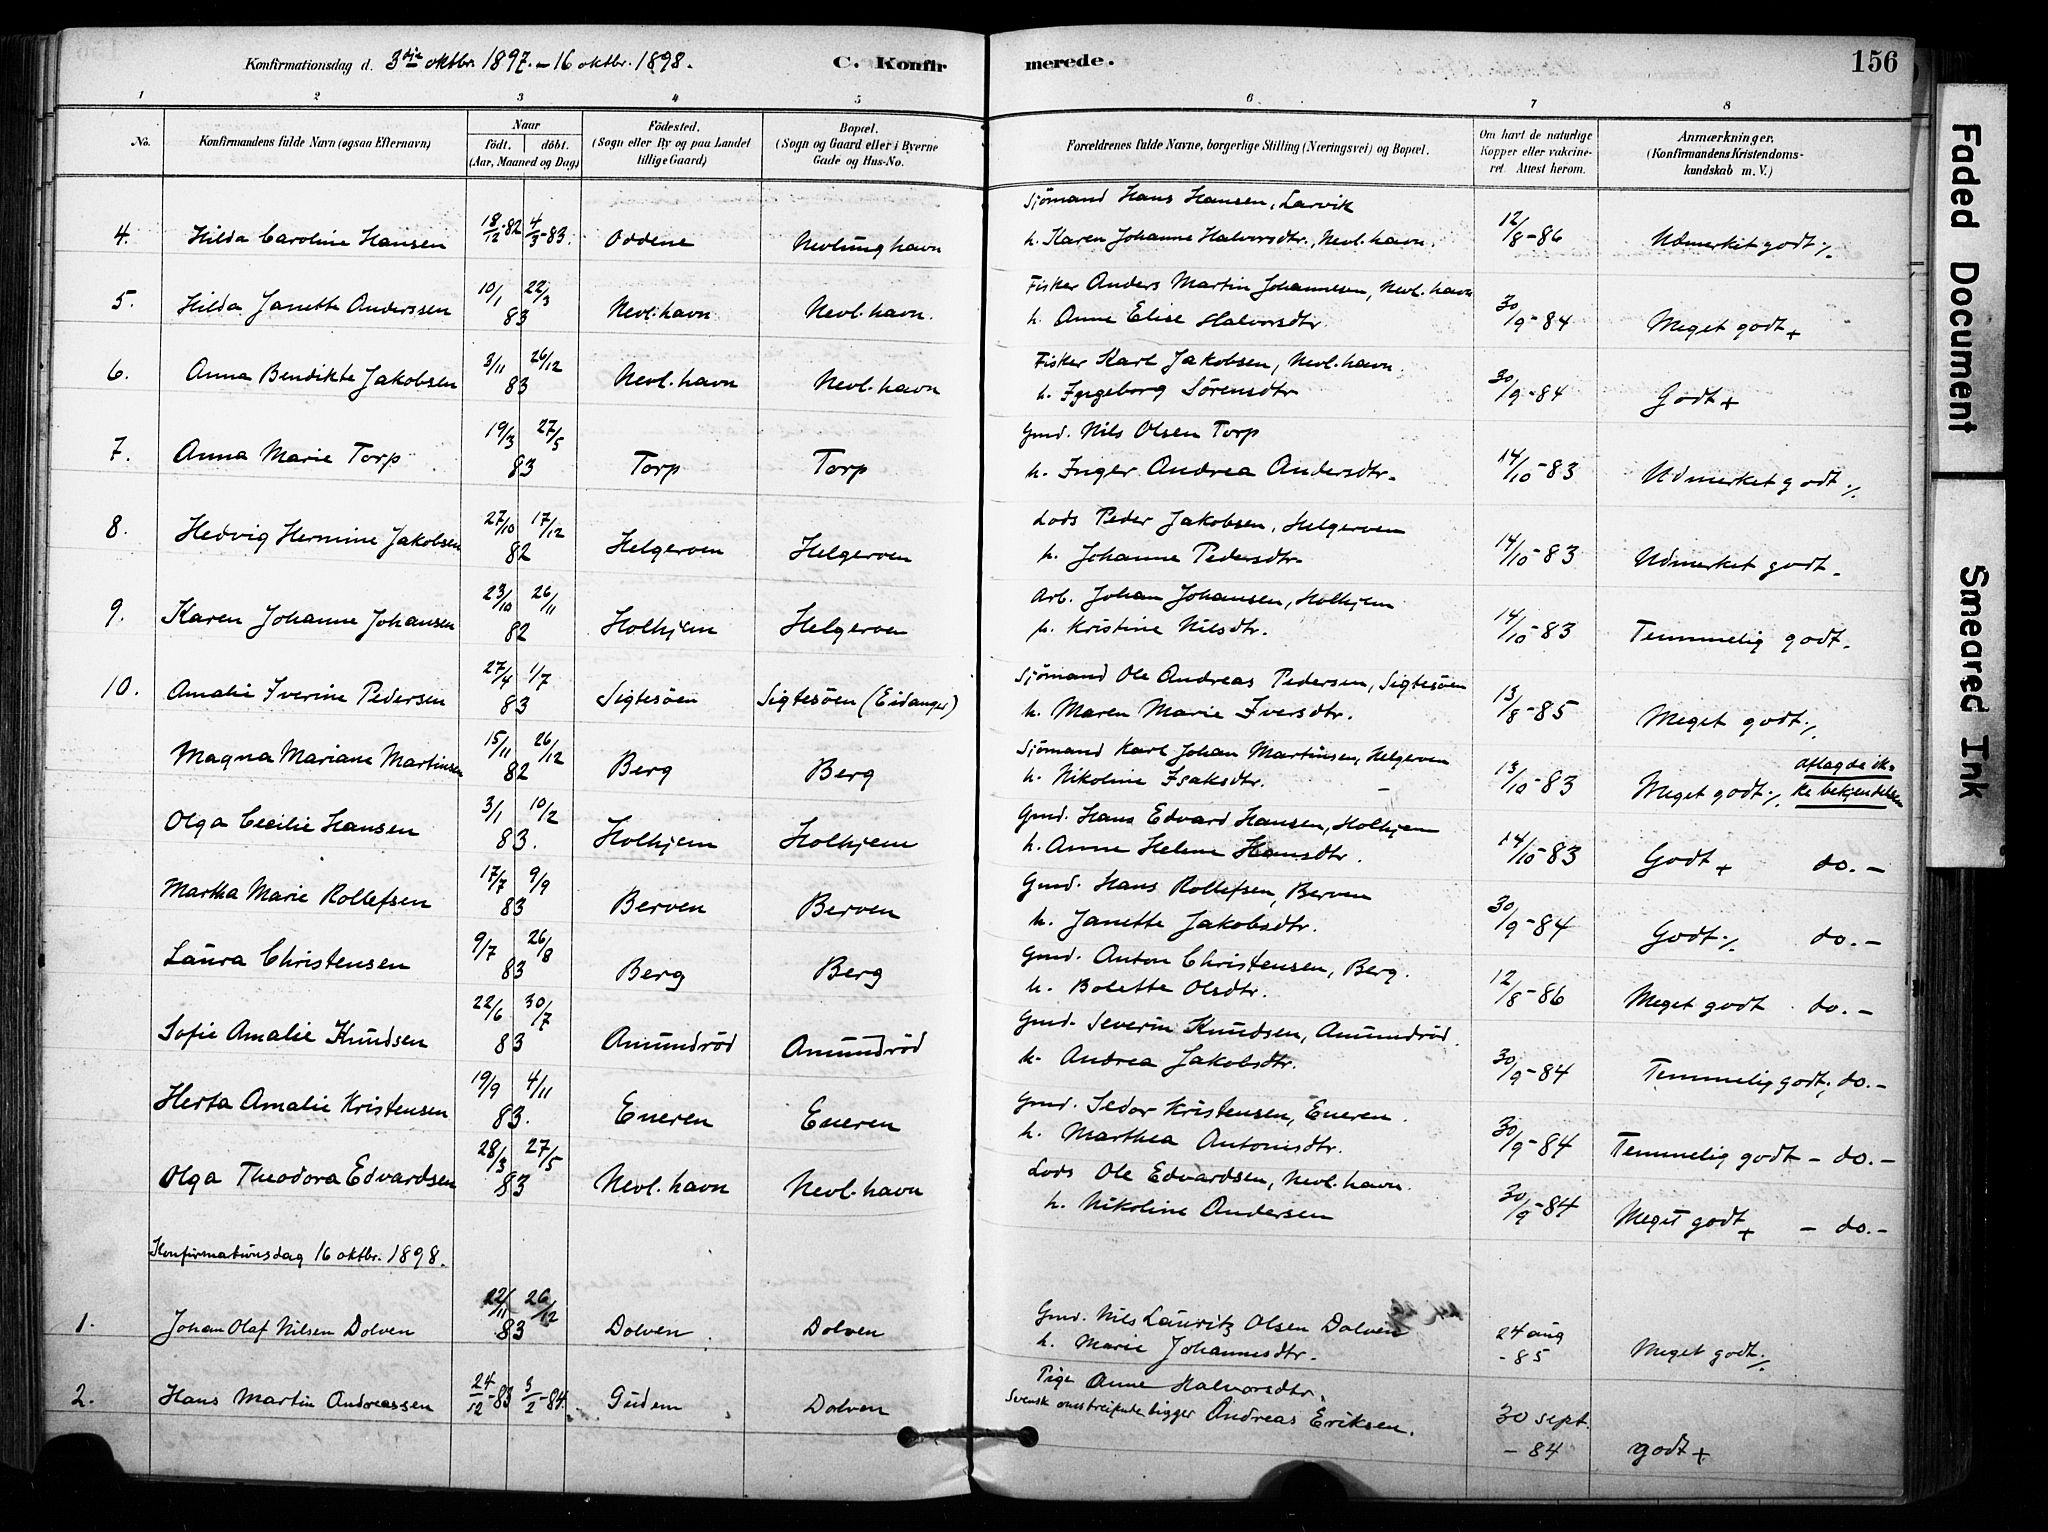 Konfirmationsdag d. 3die oktbr. 1897. - 16 oktbr. 1898. C. Konfirmerede. 156
1 2 3 4 5 6 7 8
No. Konfirmandens fulde Navn (også Efternavn) Naar født. døbt. (Aar, Maaned og Dag) Födested. (Sogn eller By og paa Landet tillige Gaard) Bopæl. (Sogn og Gaard eller i Byerne Gade og Hus-No. Forældrenes fulde Navne, borgerlige Stilling (Næringsvei) og Bopæl. Om havt de naturlige Kopper eller vakcineret. Attest herom. Anmærkninger. (Konfirmandens Kristendomskundskab m. V.)
Sjömand Hans Hansen, Larvik
4. Hilda Caroline Hansen 18/12-82 4/3-83. Oddene Nevlunghavn h. Karen Johanne Halvorsdtr., Nevl.havn. 12/8-86 Udmerket godt ./.
Fisker Anders Martin Johannesen, Nevl.havn
5. Hilda Janette Anderssen 10/1 22/3 83 Nevl.havn Nevl.havn. h. Anne Elise Halvorsdtr 30/9-84 Meget godt +
Fisker Karl Jakobsen, Nevl.havn.
6. Anna Bendikte Jakobsen 3/11 26/12 83 Nevl.havn Nevl.havn h. Ingeborg Sörensdtr 30/9-84 Godt +
Gmd. Nils Olsen Torp
7. Anna Marie Torp 19/3 27/5 83 Torp Torp h. Inger Andrea Andersdtr. 14/10-83 Udmerket godt ./.
Lods Peder Jakobsen, Helgeroen
8. Hedvig Hermine Jakobsen 27/10 17/12 82 Helgeroen Helgeroen h. Johanne Pedersdtr. 14/10-83 Udmerket godt.
Arb. Johan Johansen, Holhjem
9. Karen Johanne Johansen 23/10 26/11 82 Holhjem Helgeroen h. Kristine Nilsdtr. 14/10-83 Temmelig godt.
Sjömand Ole Andreas Pedersen, Sigtesöen
10. Amalie Iverine Pedersen 27/4 1/7 83 Sigtesöen Sigtesöen (Eidanger) h. Maren Marie Iversdtr. 13/8-85 Meget godt ./.
Sjömand Karl Johan Martinsen, Helgeroen
Magna Mariane Martinsen 15/11 26/12 82 Berg Berg h. Nikoline Isaksdtr. 13/10-83 Meget godt ./. aflagde ikke bekjendelsen
Gmd. Hans Edvard Hansen, Holhjem
Olga Cecilie Hansen 3/1 10/2 83. Holhjem Holhjem h. Anne Helene Hansdtr. 14/10-83 Godt + do.-
Gmd. Hans Rollefsen, Berven
Martha Marie Rollefsen 17/7 9/9 83 Berven Berven h. Janette Jakobsdtr. 30/9-84 Godt ./. do.-
Gmd. Anton Christensen, Berg.
Laura Christensen 9/7 26/8 83 Berg Berg h. Bolette Olsdtr. 12/8-86 Meget godt do.-
Gmd. Severin Knudsen, Amundröd.
Sofie Amalie Knudsen 22/6 30/7 83 Amundröd Amundröd h. Andrea Jakobsdtr. 30/9-84 Temmelig godt, do.-
Gmd. Sedor Kristensen, Eneren.
Herta Amalie Kristensen 19/9 4/11 83. Eneren Eneren h. Marthea Antonisdtr. 30/9-84 Temmelig godt - do.-
Lods Ole Edvardsen, Nevl.havn.
Olga Theodora Edvardsen 28/3 27/5 83 Nevl.havn Nevl.havn h. Nikoline Andersen 30/9-84 Meget godt + - do.-
Konfirmationsdag 16 oktbr. 1898.
Gmd. Nils Lauritz Olsen Dolven
1. Johan Olaf Nilsen Dolven 22/11 26/12 83 Dolven Dolven h. Marie Johannesdtr. 24 aug -85 Meget godt ./.
Pige Anne Halvorsdtr.
2. Hans Martin Andreassen 24/12-83 3/2-84. Gudem Dolven Svensk omstreifende ligger Andreas Eriksen. 30 sept. -84 godt +
Faded Document
Smeared Ink